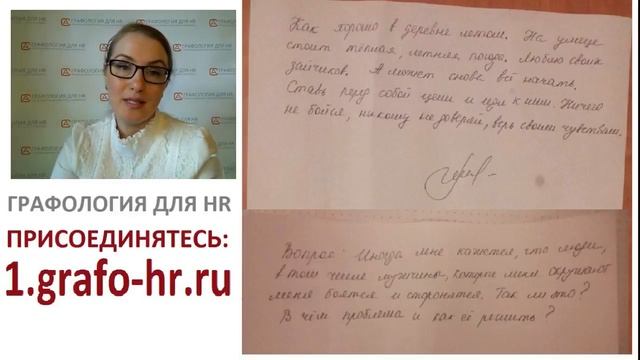 ГРАФОЛОГИЯ ДЛЯ HR
ПРИСОЕДИНЯТЕСЬ:
1.grafo-hr.ru
Как хорошо в деревне летом. На улице
стоит тёплая, летняя погода. Люблю своих
зайчиков. А может снова всё начать.
Ставь перед собой цели и иди к ним. Ничего
не бойся, никому не доверяй, верь своим чувствам.
Вопрос: Иногда мне кажется, что люди,
в том числе мужчины, которые меня окружают
меня боятся и сторонятся. Так ли это?
В чём проблема и как её решить?